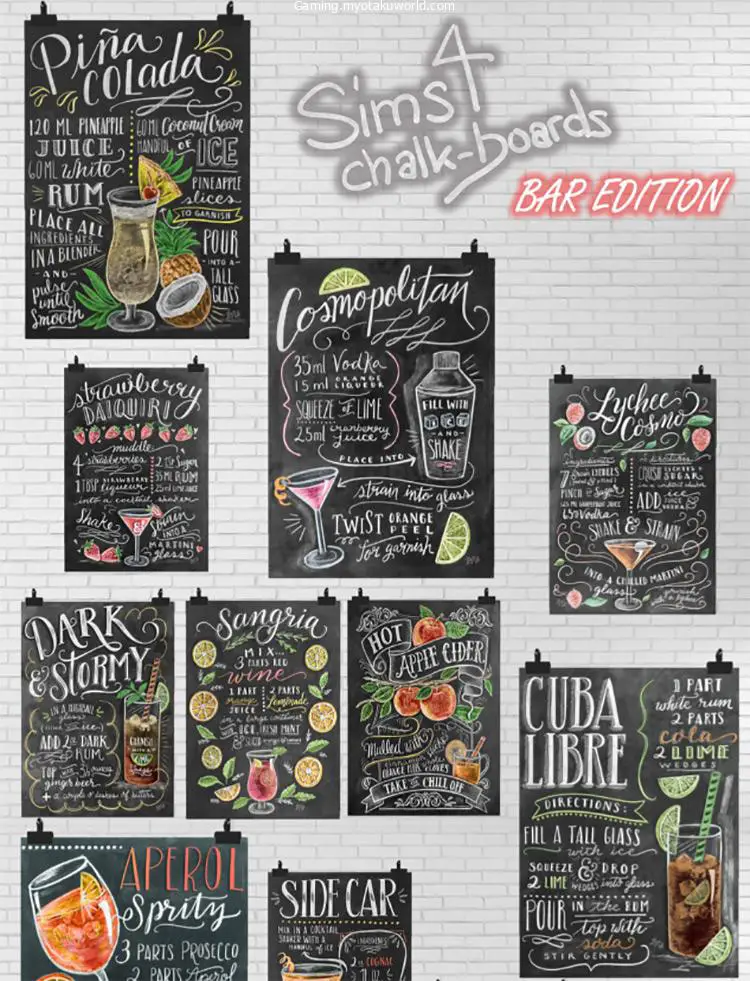 Gaming.myotakuworld.com
Sims 4
chalk-boards
BAR EDITION
Piña
COLADA
120 ML PINEAPPLE
JUICE
60 ML White
RUM
PLACE ALL
INGREDIENTS
IN A BLENDER
-AND-
pulse
until
Smooth
60 ML Coconut Cream
HANDFUL OF ICE
PINEAPPLE
slices
TO GARNISH
POUR
INTO A
TALL
GLASS
Cosmopolitan
35ml Vodka
15ml ORANGE
LIQUEUR
SQUEEZE OF LIME
25ml cranberry
juice
PLACE INTO
FILL WITH
ICE
-AND-
SHAKE
strain into glass
TWIST ORANGE
PEEL
for garnish
strawberry
DAIQUIRI
muddle
4 strawberries
1 TBSP STRAWBERRY
liqueur
2 T. Sugar
35 ML RUM
25ml LIME JUICE
into a cocktail shaker
Shake & Strain
INTO A
MARTINI
glass
Lychee
Cosmo
ingredients
directions
7
PINCH of Sugar
Vodka
CRUSH
SUGAR
ADD ice
SHAKE & STRAIN
INTO A CHILLED MARTINI
glass
DARK
& STORMY
IN A HIGHBALL
glass
ADD 2oz DARK
RUM
TOP with
ginger beer
+ a couple of dashes of bitters
GARNISH
Sangria
MIX...
3 PARTS RED
wine
1 PART
JUICE
2 PARTS
Lemonade
in a large container
with ICE, FRESH MINT
& SLICED
HOT
APPLE CIDER
Mulled with
cinnamon sticks
ORANGE PEEL CLOVES
TAKE THE CHILL OFF
CUBA
LIBRE
1 PART
white rum
2 PARTS
cola
2 LIME
WEDGES
DIRECTIONS:
FILL A TALL GLASS
with ice
SQUEEZE & DROP
2 LIME WEDGES into glass
POUR IN the RUM
top with
soda
STIR GENTLY
APEROL
Spritz
3 PARTS PROSECCO
2 PARTS Aperol
SIDE CAR
MIX IN A COCKTAIL
SHAKER WITH A
HANDFUL of ICE
INGREDIENTS
2 oz COGNAC
1 oz